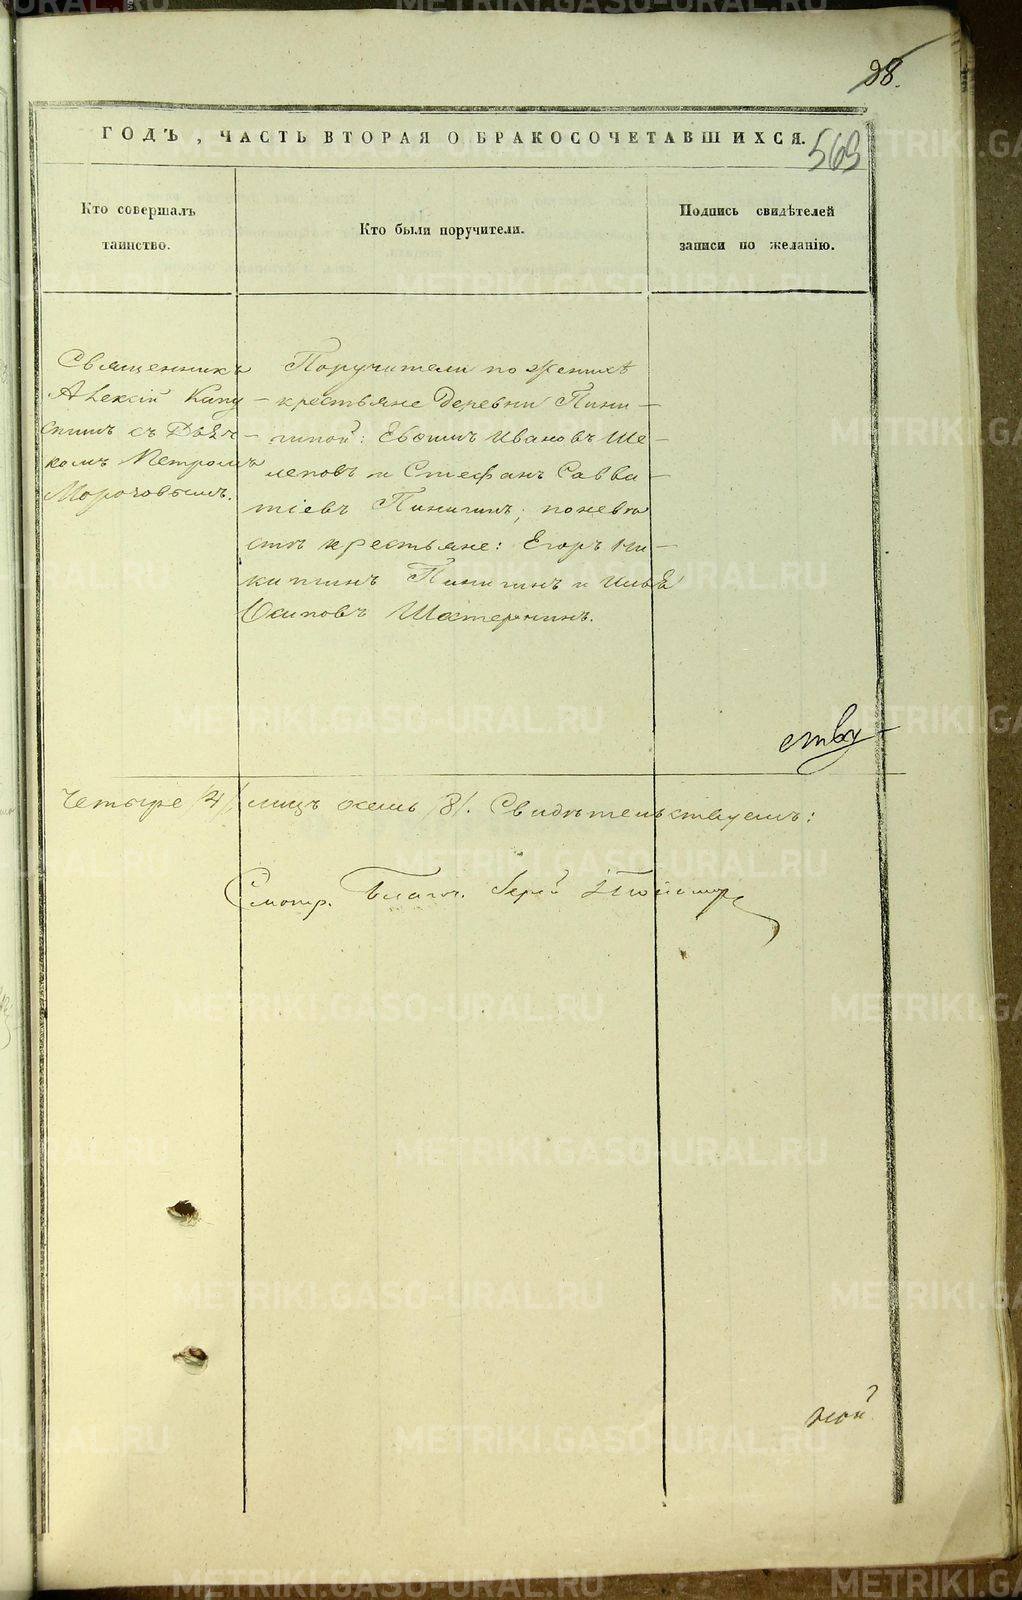 98.
ГОДЪ, ЧАСТЬ ВТОРАЯ О БРАКОСОЧЕТАВШИХСЯ.
569
Кто совершалъ
таинство.
Кто были поручители.
Подпись свидѣтелей
записи по желанію.
Священникъ
Алексій Капу-
стинъ съ Дьяч-
комъ Петромъ
Морозовымъ.
Поручители по женихѣ
крестьяне деревни Пини-
гиной: Евѳимъ Ивановъ Ше-
леповъ и Стефанъ Савва-
тіевъ Пинигинъ; по невѣ
стѣ крестьяне: Егоръ Ни-
китинъ Пинигинъ и Илья
Осиповъ Шатернинъ.
ству-
Четыре /4/, лицъ осмь /8/. Свидѣтельствуемъ:
Смотр. Благоч. Іерей